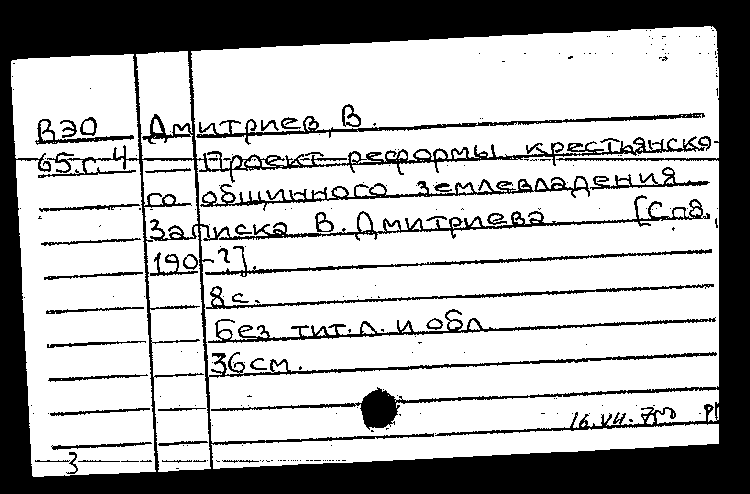 ВЭО Дмитриев, В.
65.г.4 Проект реформы крестьянско-
го общинного землевладения.
Записка В. Дмитриева. [Спб.,
190-?].
8 с.
Без тит. л. и обл.
36 см.
16.VII.
3